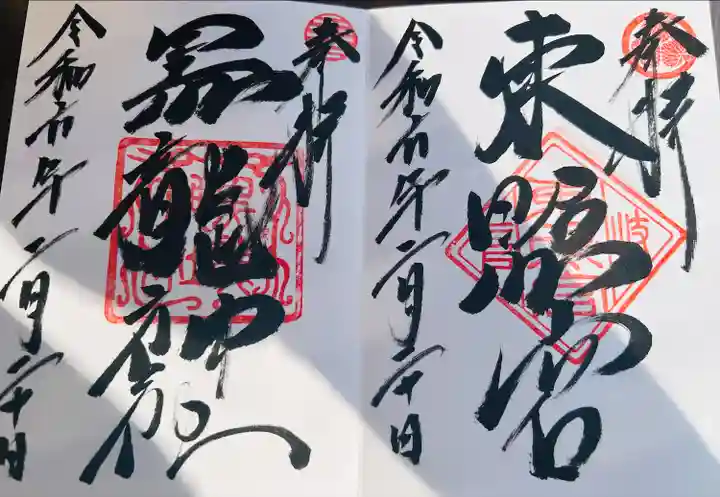 奉拝
東照宮
令和六年二月二十日
奉拝
黒龍神社
令和六年二月二十日